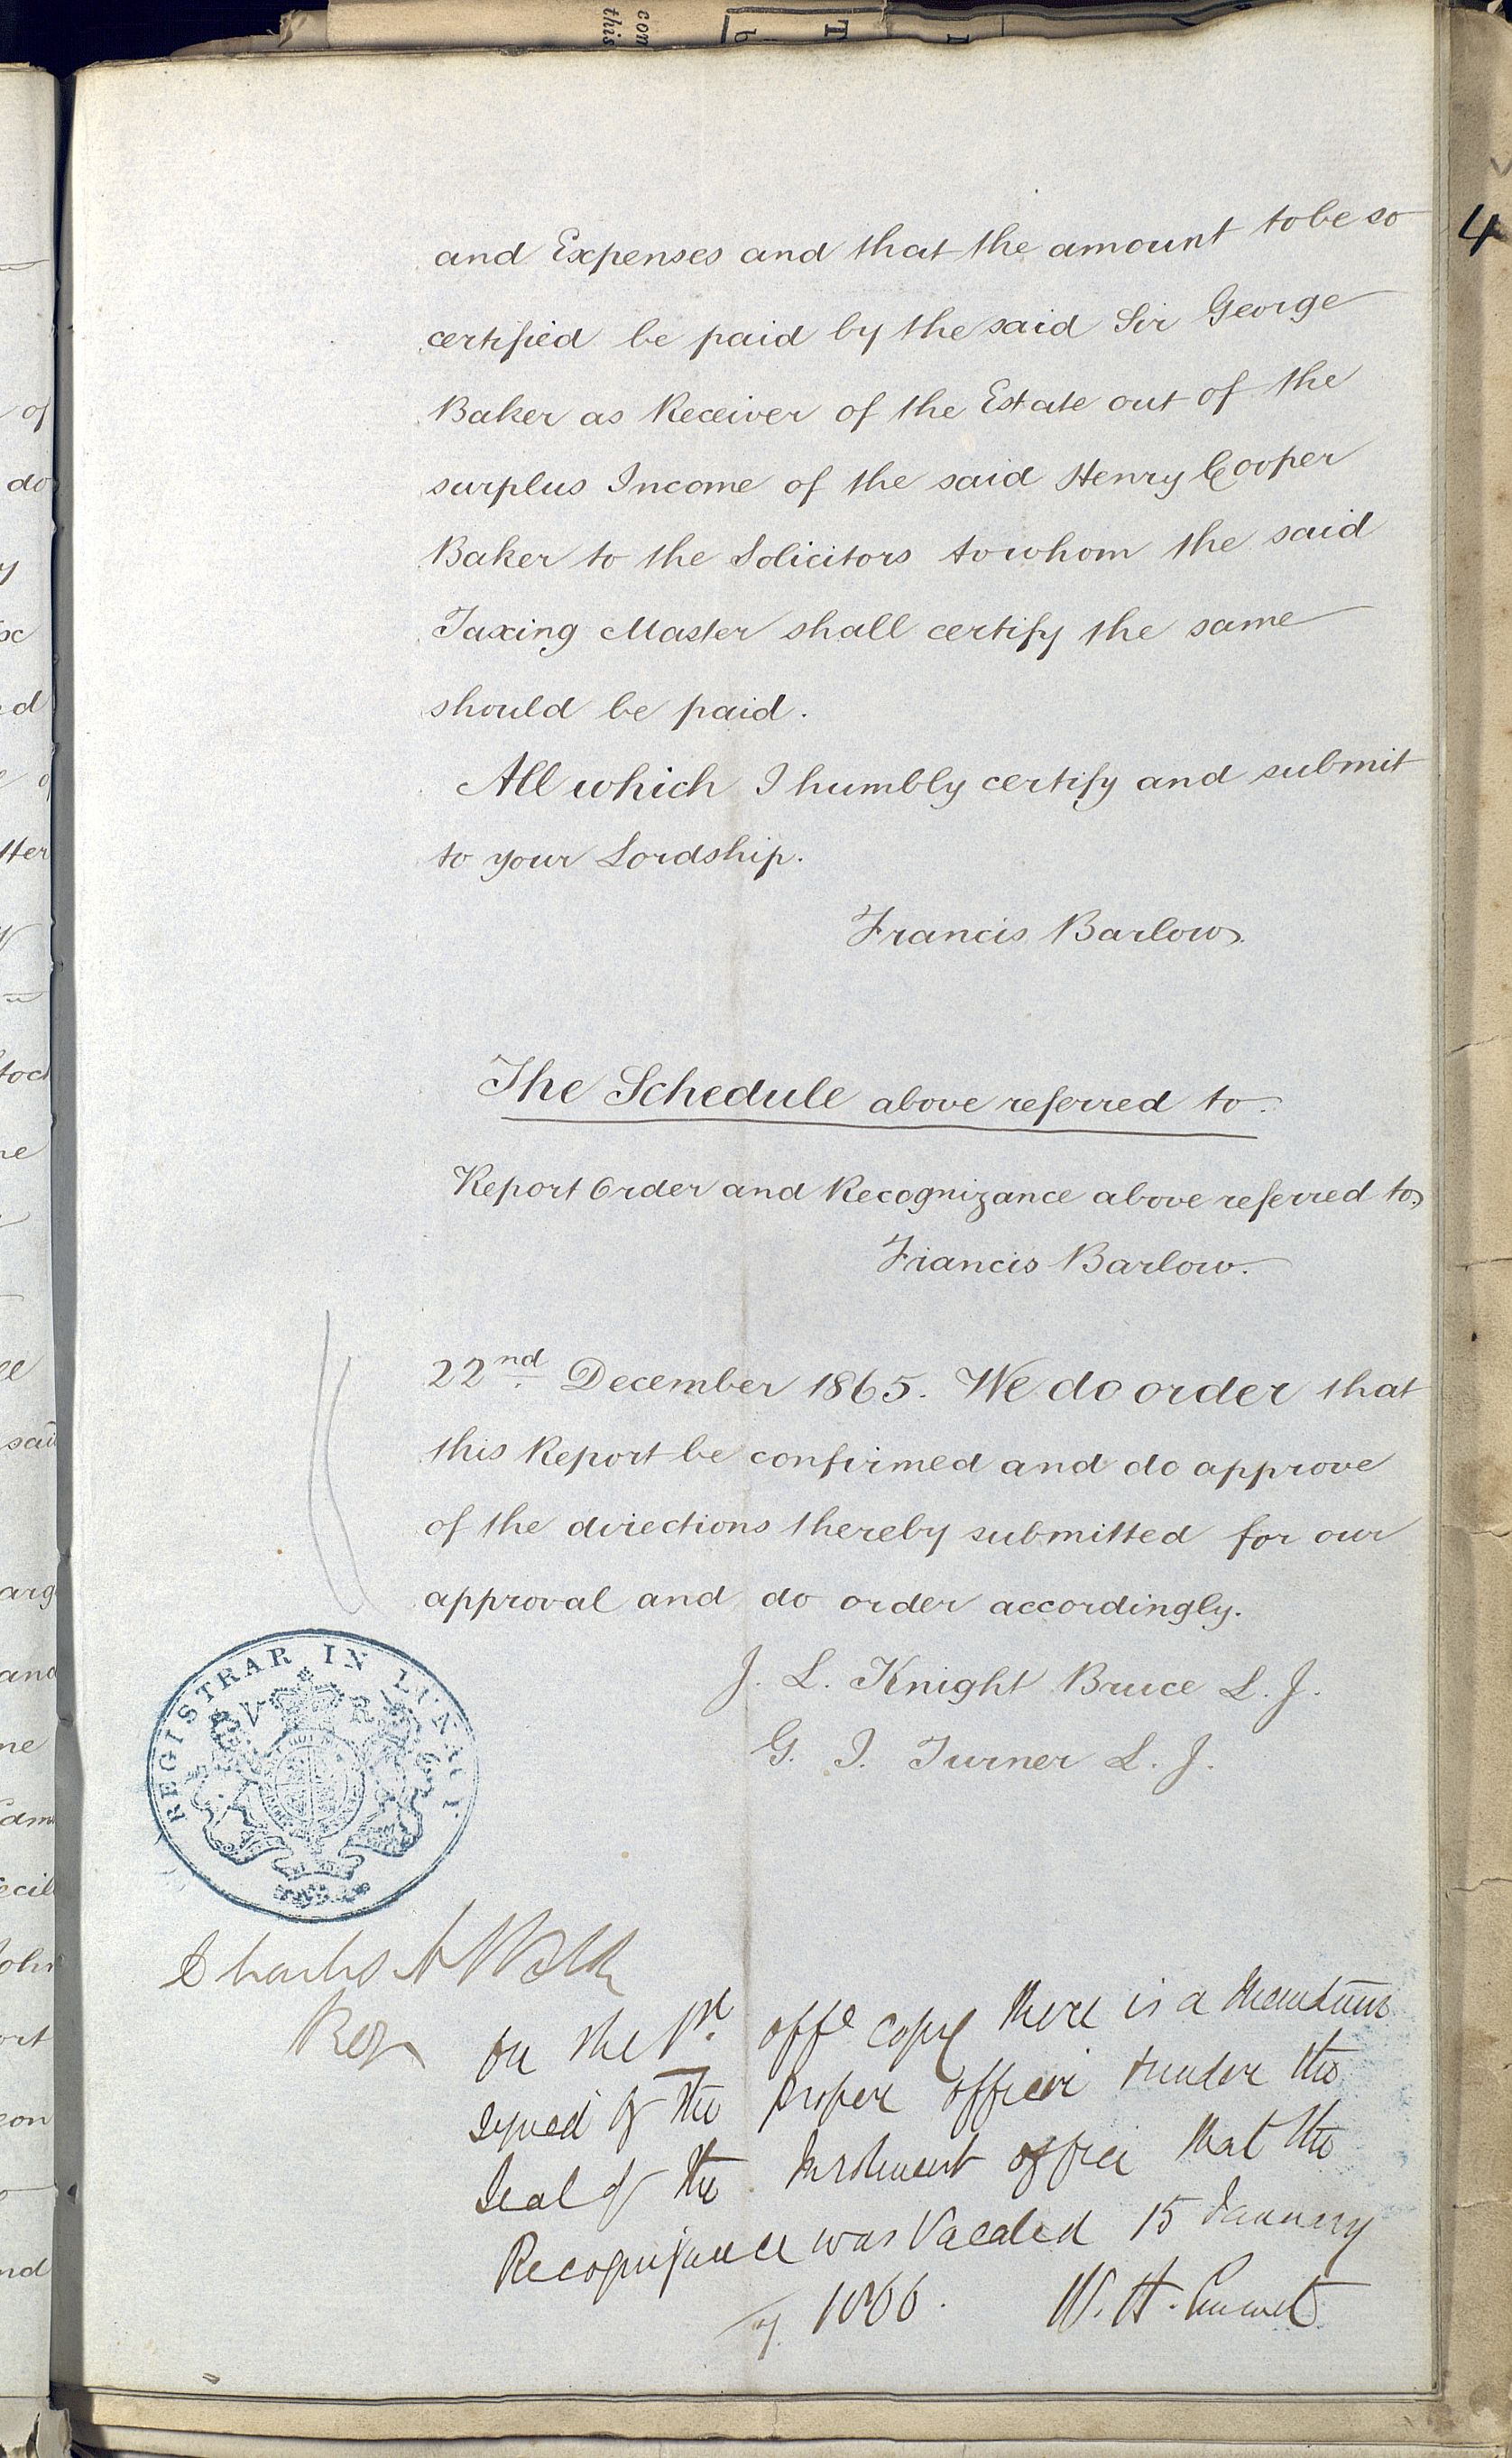 4
and Expenses and that the amount to be so
certified be paid by the said Sir George
Baker as Receiver of the Estate out of the
surplus Income of the said Henry Cooper
Baker to the Solicitors to whom the said
Taxing Master shall certify the same
should be paid.
All which I humbly certify and submit
to your Lordship.
Francis Barlow.
The Schedule above referred to.
Report Order and Recognizance above referred to.
Francis Barlow.
22nd December 1865. We do order that
this Report be confirmed and do approve
of the directions thereby submitted for our
approval and do order accordingly.
J. L. Knight Bruce L. J.
G. J. Turner L. J.
REGISTRAR IN LUNACY
V R
Charles N
Regr
On the 1st offe copy there is a
signed by the proper officer under the
Seal of the Inrolment office that the
Recognizance was Vacated 15 January
1866. W. H.